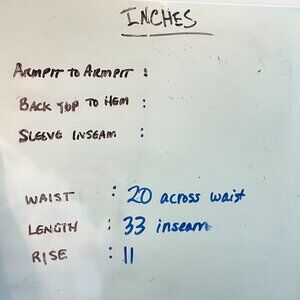 INCHES
ARMPIT TO ARMPIT :
BACK TOP TO HEM :
SLEEVE INSEAM :
WAIST : 20 across waist
LENGTH : 33 inseam
RISE : 11